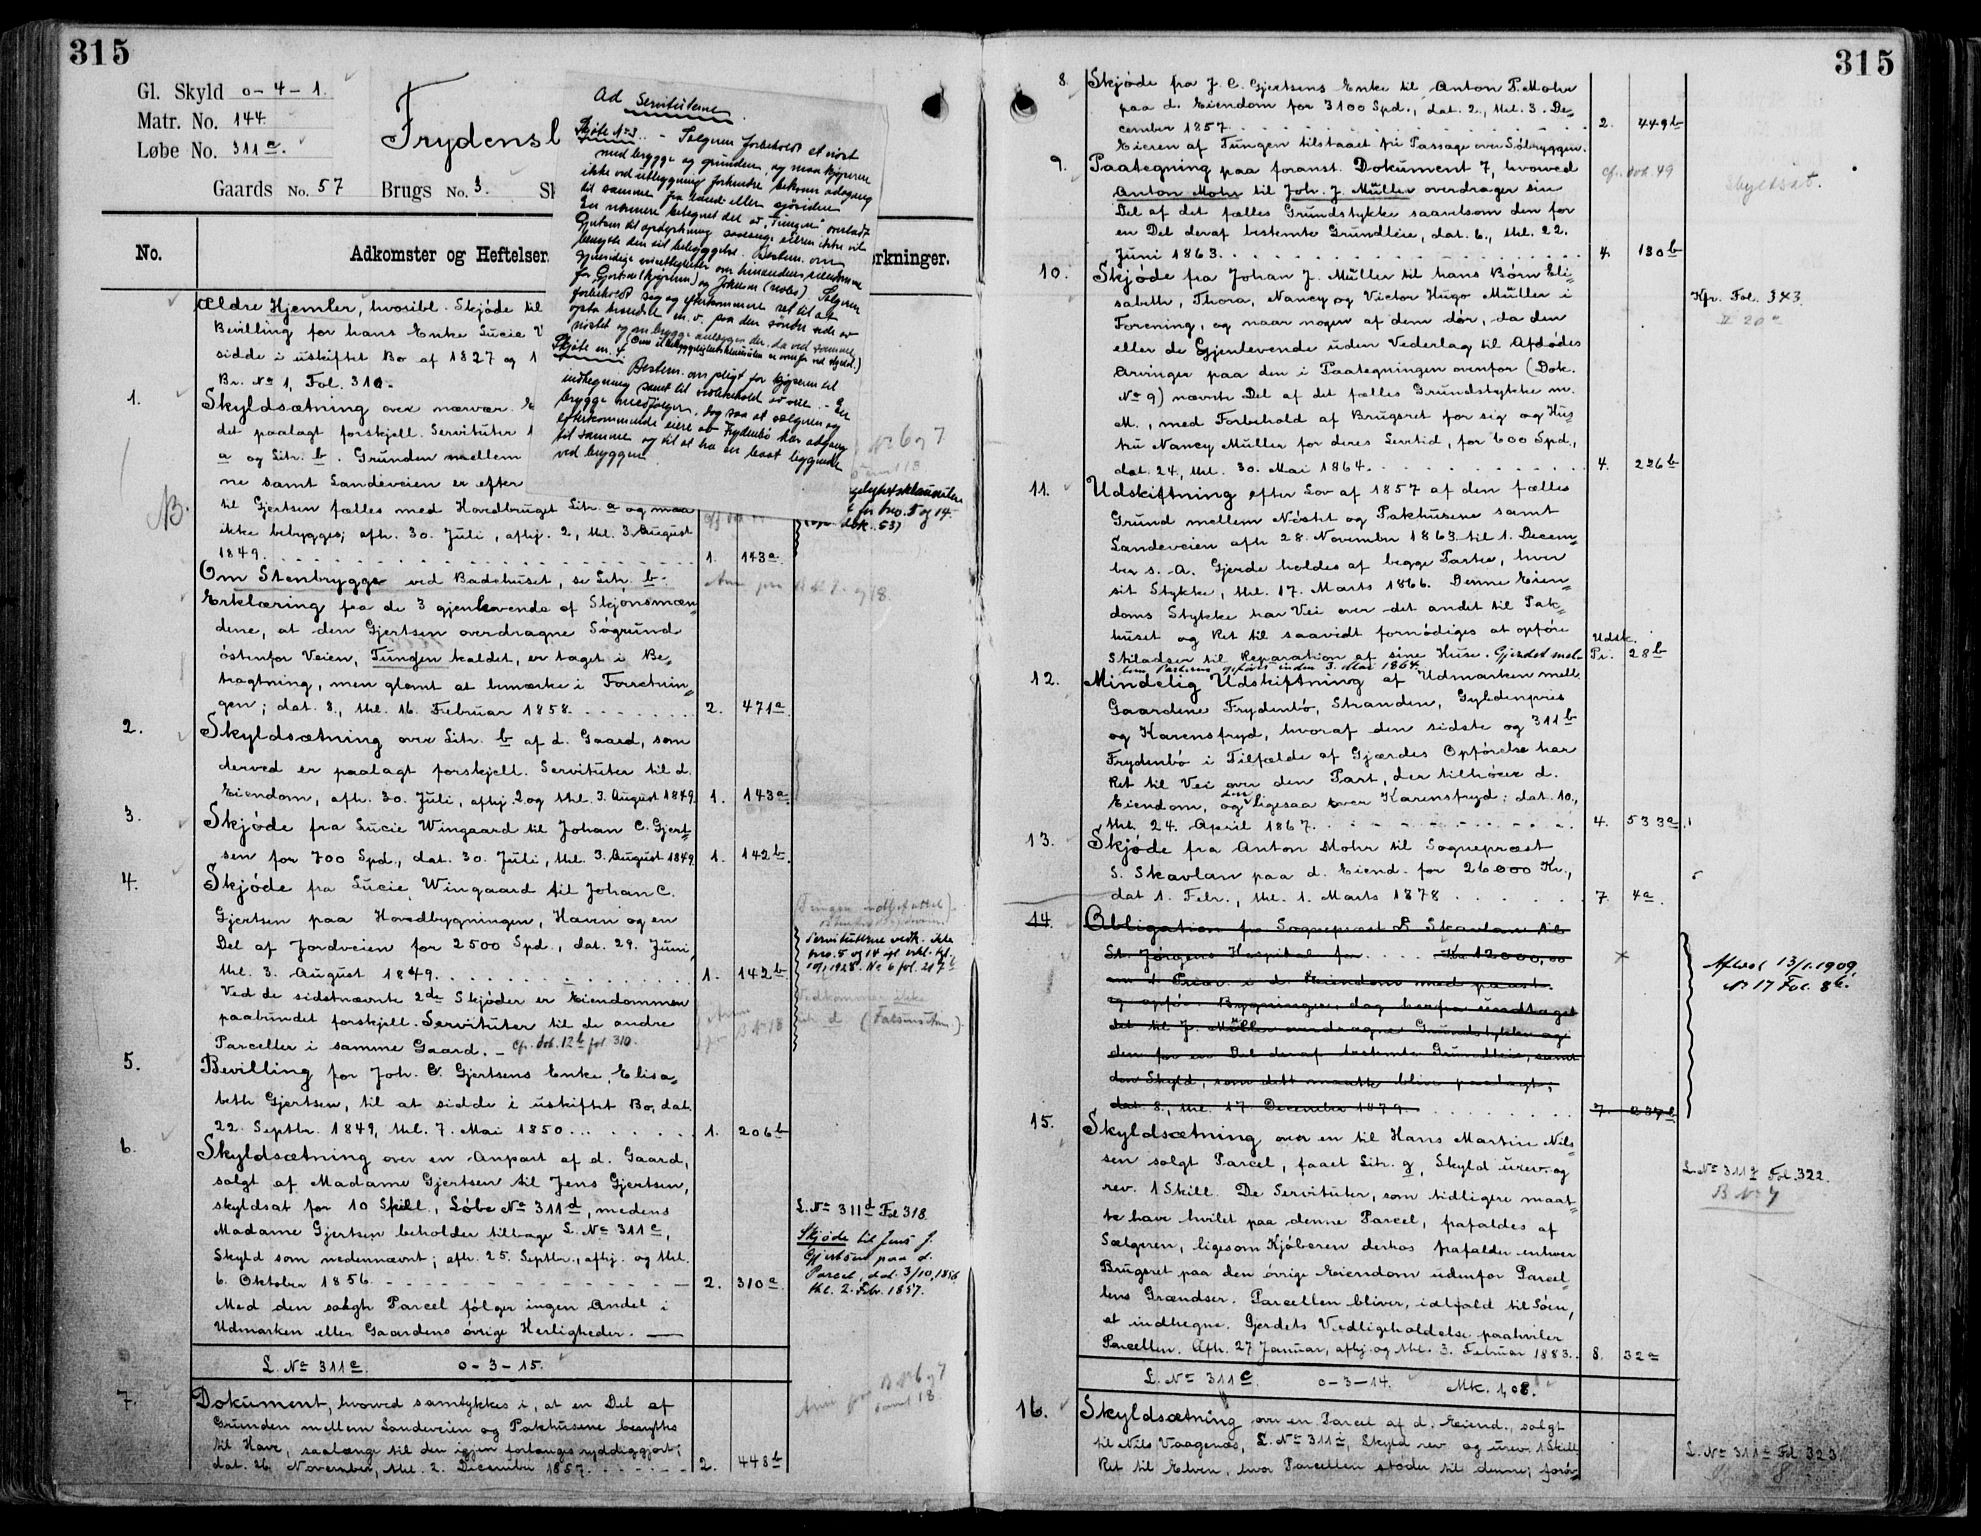 315
Gl. Skyld 0-4-1.
Matr. No. 144.
Løbe No. 311a.
Frydensl
Gaards No. 57 Brugs No. 3. Sk
No. Adkomster og Heftelser. rkninger.
Ad Servituterne
Skjøte No 3. - Selgeren forbeholdt et nøst
med brygge og grunden, og maa kjøperen
ikke ved utbygning forhindre bekvem adgang
til samme fra land- eller sjøsiden
En nærmere betegnet del av "Tungen" overladt
Gjertsen til opdyrkning saalenge eieren ikke vil
benytte den til bebyggelse. Bestem. om
gjensidige rettigheter over hinandens eiendomme
for Gjertsen (kjøperen) og
forbeholdt seg og efterkommere ret til at
nøstet og en brygge
Skjøte nr. 4.
Bestem. om pligt for kjøperen til
indhegning samt til vedlikehold av veie. - En
brygge medfølger, dog saa at sælgeren og
efterkommende eiere av Frydenbø har adgang
til samme og til at ha en baat liggende
ved bryggen.
Ældre Hjemler, hvoribl. Skjøde til
Bevilling for hans Enke Lucie W
sidde i uskiftet Bo af 1827 og 1
Br. No 1, Fol. 310.
1. Skyldsætning over nærvær. E
det paalagt forskjell. Servituter
a og Litr. b. Grunden mellem
ne samt Landeveien er efter
NB. til Gjertsen fælles med Hovedbruget Litr. a og maa
ikke bebygges; afh. 30. Juli, afhj. 2, thl. 3. August
1849. 1. 143a.
No 6 og 7
dok. 53)
Om Stenbrygge ved Badehuset, se Litr. b.
Erklæring fra de 3 gjenlevende af Skjønsmæn-
dene, at den Gjertsen overdragne Søgrund
østenfor Veien, Tungen kaldet, er taget i Be-
tragtning, men glemt at bemærke i Forretnin-
gen; dat. 8., thl. 16. Februar 1858. 2. 471a
2. Skyldsætning over Litr. b af d. Gaard, som
derved er paalagt forskjell. Servituter til d.
Eiendom, afh. 30. Juli, afhj. 2. og thl. 3. August 1849. 1. 143a.
3. Skjøde fra Lucie Wingaard til Johan C. Gjert-
sen for 700 Spd., dat. 30. Juli, thl. 3. August 1849. 1. 142b.
4. Skjøde fra Lucie Wingaard til Johan C.
Gjertsen paa Hovedbygningen, Haven og en
Del af Jordveien for 2500 Spd., dat. 29. Juni,
thl. 3. August 1849. 1. 142b
Servituterne vedk. ikke
bno. 5 og 14
Ved de sidstnævnte 2de Skjøder er Eiendommen
paabundet forskjell. Servituter til de andre
Parceller i samme Gaard. - Cfr. dok. 12b fol. 310.
Vedkommer ikke
5. Bevilling for Joh. C. Gjertsens Enke, Elisa-
beth Gjertsen, til at sidde i uskiftet Bo, dat.
22. Septbr. 1849, thl. 7. Mai 1850. 1. 206b
6. Skyldsætning over en Anpart af d. Gaard,
solgt af Madame Gjertsen til Jens Gjertsen,
skyldsat for 10 Skill., Løbe No 311d, medens
Madame Gjertsen beholder tilbage L. No 311c,
Skyld som nedennævnt; afh. 25. Septbr., afhj. og thl.
6. Oktober 1856. 2. 310a.
L. No 311d Fol 318.
Skjøde til Jens J.
Gjertsen paa d.
Parcel, dat. 3/10, 1856
thl. 2. Febr. 1857.
Med den solgte Parcel følger ingen Andel i
Udmarken eller Gaardens øvrige Herligheder.
L. No 311c. 0-3-15.
7. Dokument, hvorved samtykkes i, at en Del af
Grunden mellem Landeveien og Pakhusene benyttes
til Have, saalænge til den igjen forlanges ryddiggjort;
dat. 26 November, thl. 2. December 1857. 2. 448b
B No 6 og 7
samt 18.
315
8. Skjøde fra J. C. Gjertsens Enke til Anton P. Mohr
paa d. Eiendom for 3100 Spd., dat. 2, thl. 3. De-
cember 1857. 2. 449b
Eieren af Tungen tilstaaet fri Passage over Søbryggen.
9. Paategning paa foranst. Dokument 7, hvorved
Anton Mohr til Joh. J. Müller overdrager sin
Del af det fælles Grundstykke saavelsom den for
en Del deraf bestemte Grundleie, dat. 6., thl. 22.
Juni 1863. 4. 130b
cfr. dok. 49
Skyldsat.
10. Skjøde fra Johan J. Müller til hans Børn Eli-
sabeth, Thora, Nancy og Victor Hugo Müller i
Forening, og naar nogen af dem dør, da den
eller de Gjenlevende uden Vederlag til Afdødes
Arvinger paa den i Paategningen ovenfor (Dok.
No 9) nævnte Del af det fælles Grundstykke m.
M., med Forbehold af Brugsret for sig og Hus-
tru Nancy Müller for deres Levetid, for 600 Spd.,
dat. 24, thl. 30. Mai 1864. 4. 226b
Kfr. Fol. 343.
11. Udskiftning efter Lov af 1857 af den fælles
Grund mellem Nøstet og Pakhusene samt
Landeveien afh 28. November 1863 til 1. Decem-
ber s. A. Gjerde holdes af begge Parter, hver
sit Stykke, thl. 17. Marts 1866. Denne Eien-
doms Stykke har Vei over det andet til Pak-
huset og Ret til saavidt fornødiges at opføre
Stiladser til Reparation af sine Huse. Gjerdet mel-
lem Parterne opføres inden 3. Mai 1864.
Udsk.
Pr. 28b
12. Mindelig Udskiftning af Udmarken mell.
Gaardene Frydenbø, Stranden, Gyldenpris
og Karensfryd, hvoraf den sidste og 311b
Frydenbø i Tilfælde af Gjærdes Opførelse har
Ret til Vei over den Part, der tilhører d.
Eiendom, og den ligesaa over Karensfryd; dat. 10.,
thl. 24. April 1867. 4. 533a
13. Skjøde fra Anton Mohr til Sogneprest
S. Skavlan paa d. Eiend. for 26000 Kr.,
dat 1. Febr., thl. 1. Marts 1878 7 4a.
14. Obligation fra Sogneprest S Skavlan til
St. Jørgens Hospital for Kr 12000,00
m 1. Prior. i d. Eiendom med paast.
og opfør. Bygninger, dog herfra undtaget
det til J. Müller overdragne Grundstykke og
den for en Del deraf bestemte Grundleie, samt
den Skyld, som dett maatte blive paalagt;
dat. 8., thl. 17 December 1879. 7. 237b
Aflæst 13/1.1909,
No 17 Fol. 8b.
15. Skyldsætning over en til Hans Martin Nils-
sen solgt Parcel, faaet Litr. g, Skyld urev. og
rev. 1 Skill. De Servituter, som tidligere maat-
te have hvilet paa denne Parcel, frafaldes af
Sælgeren, ligesom Kjøberen derhos frafalder enhver
Brugsret paa den øvrige Eiendom udenfor Parcel-
lens Grændser. Parcellen bliver, idetfald til Søen,
at indhegne. Gjerdets Vedligeholdelse paahviler
Parcellen. Afh. 27 Januar, afhj. og thl. 3. Februar 1883. 8. 32a
L. No 311g Fol. 322.
B No 7
L. No 311c. 0-3-14. Mk. 1,08.
16. Skyldsætning over en Parcel af d. Eiend., solgt
til Nils Vaagenæs, L. No 311i, Skyld rev. og urev. 1 Skill.
Ret til Elven, hvor Parcellen støder til denne; forøv-
L. No 311i Fol. 323.